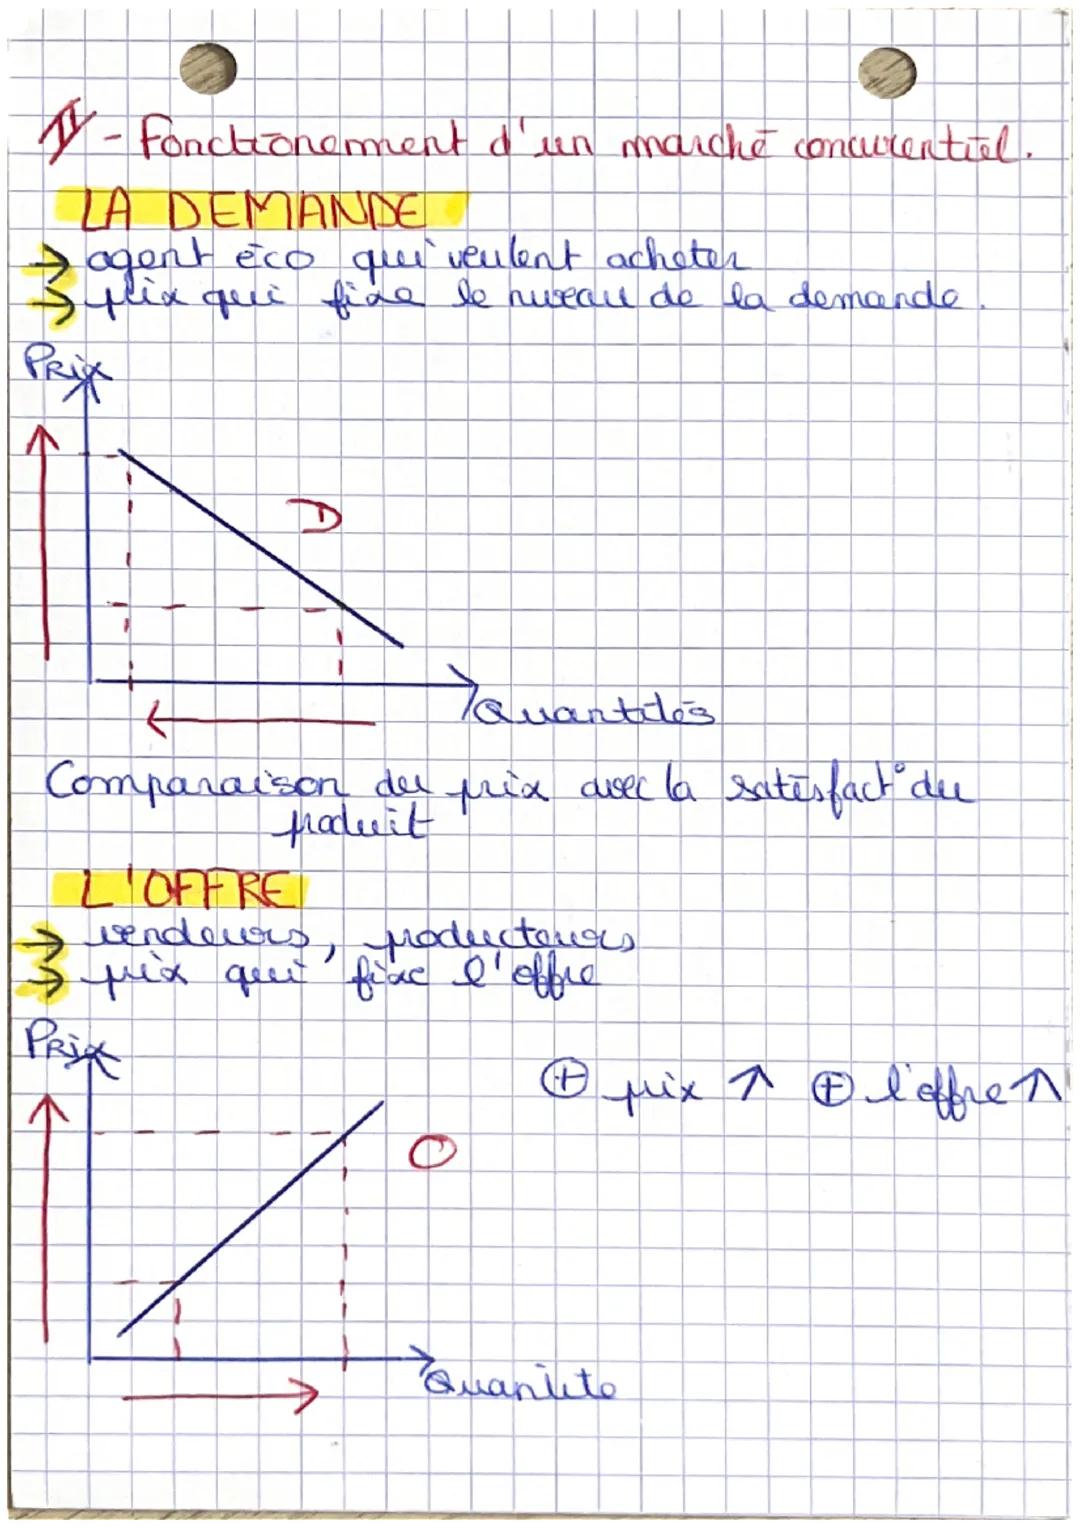 II - Fonctionement d'un marché concurentiel.
LA DEMANDE
→ agent éco qui veulent acheter
→ prix qui fixe le niveau de la demande.
PRix
D
Quantités
Comparaison du prix avec la satisfact° du
produit
L'OFFRE
→ vendeurs, producteurs
→ prix qui fixe l'offre
PRix
⊕ prix ↑ ⊕ l'offre ↑
O
Quantité